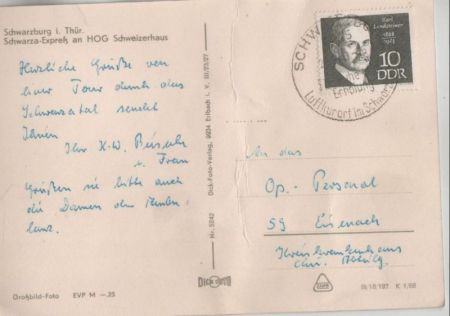 Schwarzburg i. Thür.
Schwarza-Expreß an HOG Schweizerhaus
Herzliche Grüße von
Tour durch das
Schwarzatal sendet
Ihnen
Ihr K.-W.
u. Frau
Grüßen sie bitte auch
die Damen der
Großbild-Foto EVP M —.25
Nr. 5242 Dick-Foto-Verlag, 9924 Erlbach i. V. III/23/27
DICK FOTO
SCHW
Erholung
Luftkurort im Schwarza
Karl Landsteiner
1868
1943
10
DDR
An das
Op.-Personal
59 Eisenach
Kreiskrankenhaus
Chir. Abtlg.
K 1/68